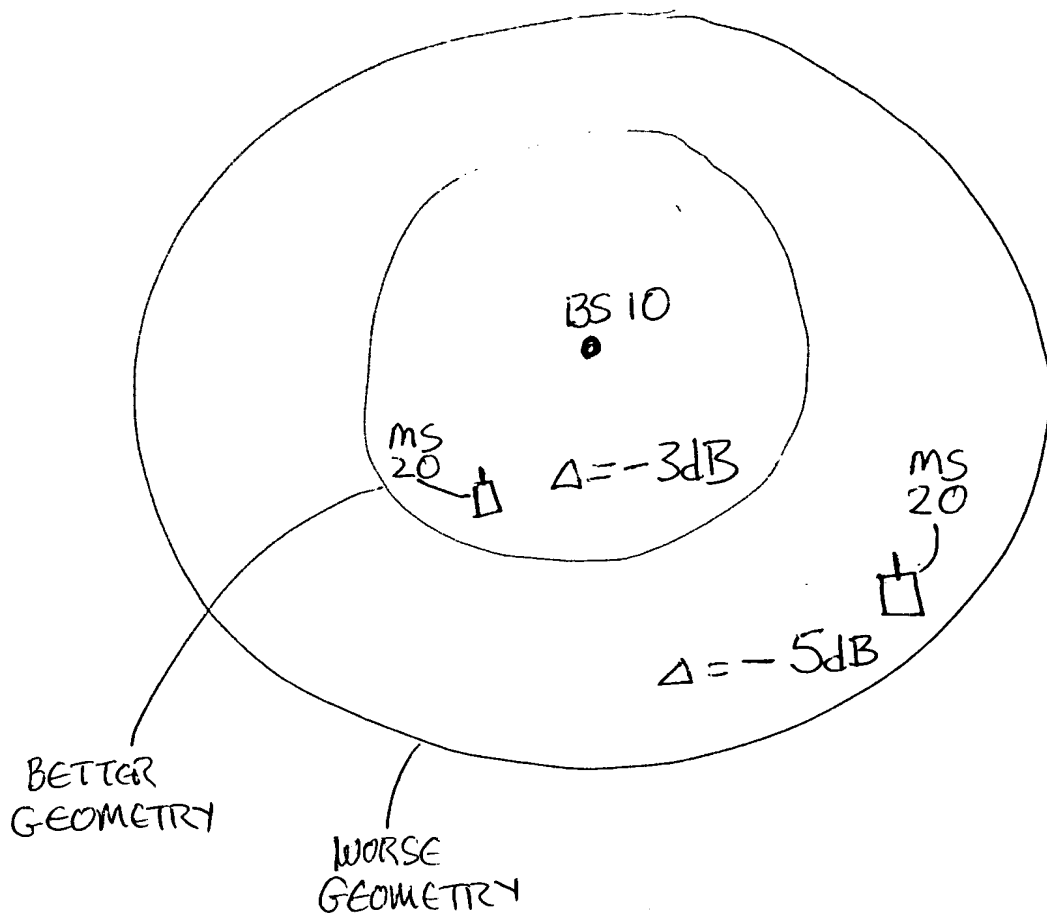 BS 10
MS
20
Δ = -3dB
MS
20
Δ = - 5dB
BETTER
GEOMETRY
WORSE
GEOMETRY